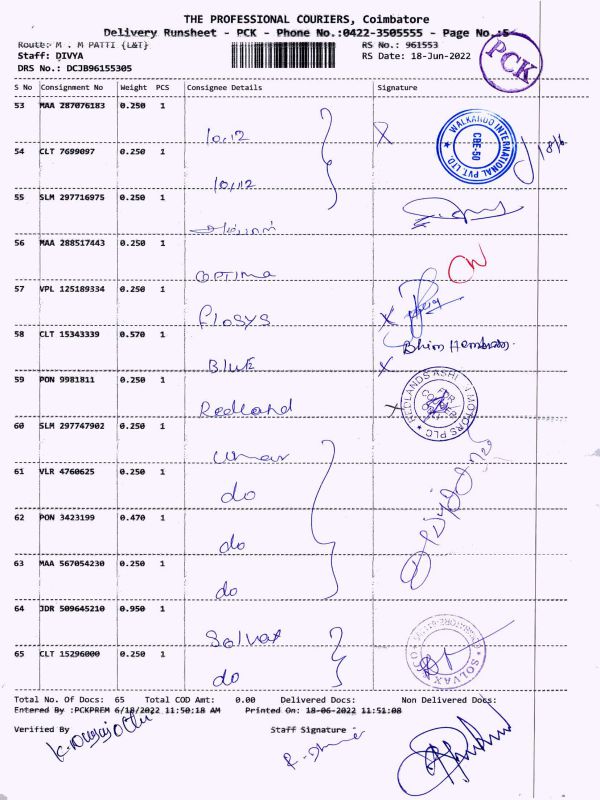 THE PROFESSIONAL COURIERS, Coimbatore
Delivery Runsheet - PCK - Phone No.:0422-3505555 - Page No.:5
Route:- M . M PATTI {L&T}
RS No.: 961553
PCK
Staff: DIVYA
RS Date: 18-Jun-2022
DRS No.: DCJB96155305
S No Consignment No Weight PCS Consignee Details Signature
53 MAA 287076183 0.250 1
10,12
WALKAROO INTERNATIONAL PVT LTD
CBE-50
54 CLT 7699097 0.250 1
10,12
55 SLM 297716975 0.250 1
56 MAA 288517443 0.250 1
OPTIMA
57 VPL 125189334 0.250 1
FLOSYS
58 CLT 15343339 0.570 1
BLUE
59 PON 9981811 0.250 1
Redland
60 SLM 297747902 0.250 1
umar
61 VLR 4760625 0.250 1
do
62 PON 3423199 0.470 1
do
63 MAA 567054230 0.250 1
do
64 JDR 509645210 0.950 1
Solvax
65 CLT 15296000 0.250 1
do
Total No. Of Docs: 65 Total COD Amt: 0.00 Delivered Docs: Non Delivered Docs:
Entered By :PCKPREM 6/18/2022 11:50:18 AM Printed On: 18-06-2022 11:51:08
Verified By Staff Signature